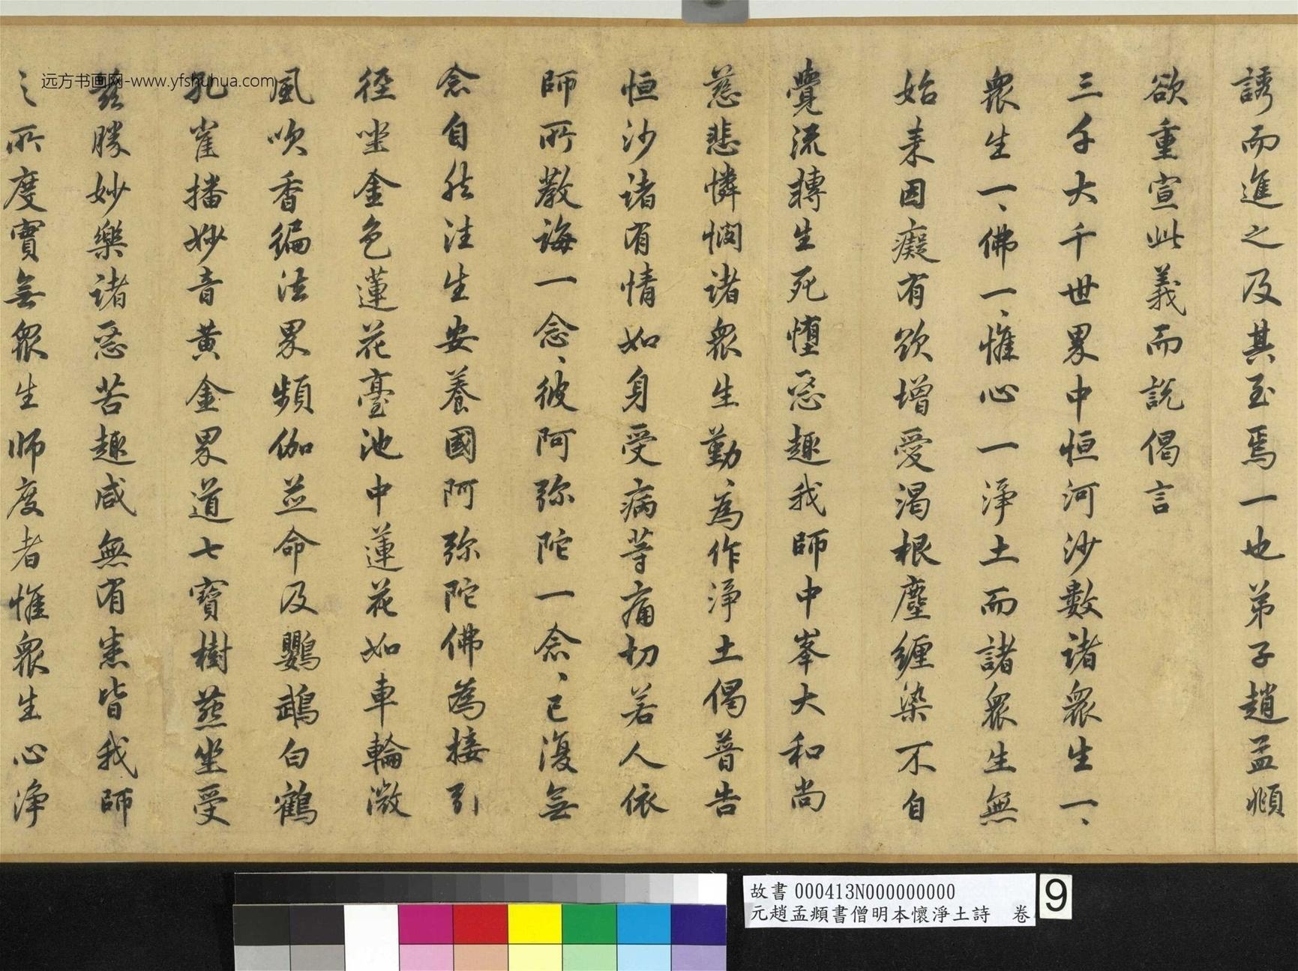 誘而進之及其至焉一也弟子趙孟頫
欲重宣此義而說偈言
三千大千世界中恒河沙數諸衆生一〻
衆生一〻佛一〻惟心一淨土而諸衆生無
始来因癡有欲增愛渴根塵纏染不自
覺流轉生死墮惡趣我師中峯大和尚
慈悲憐憫諸衆生勤〻為作淨土偈普告
恒沙諸有情如身受病等痛切若人依
師所教誨一念〻彼阿弥陀一念〻已復無
念自然往生安養國阿弥陀佛為接引
徑坐金色蓮花臺池中蓮花如車輪微
風吹香徧法界頻伽並命及鸚鵡白鶴
孔雀播妙音黄金界道七寶樹燕坐受
兹勝妙樂諸惡苦趣咸無有悉皆我師
之所度實無衆生師度者惟衆生心淨
远方书画网-www.yfshuhua.com
故書 000413N000000000
元趙孟頫書僧明本懷淨土詩 卷
9